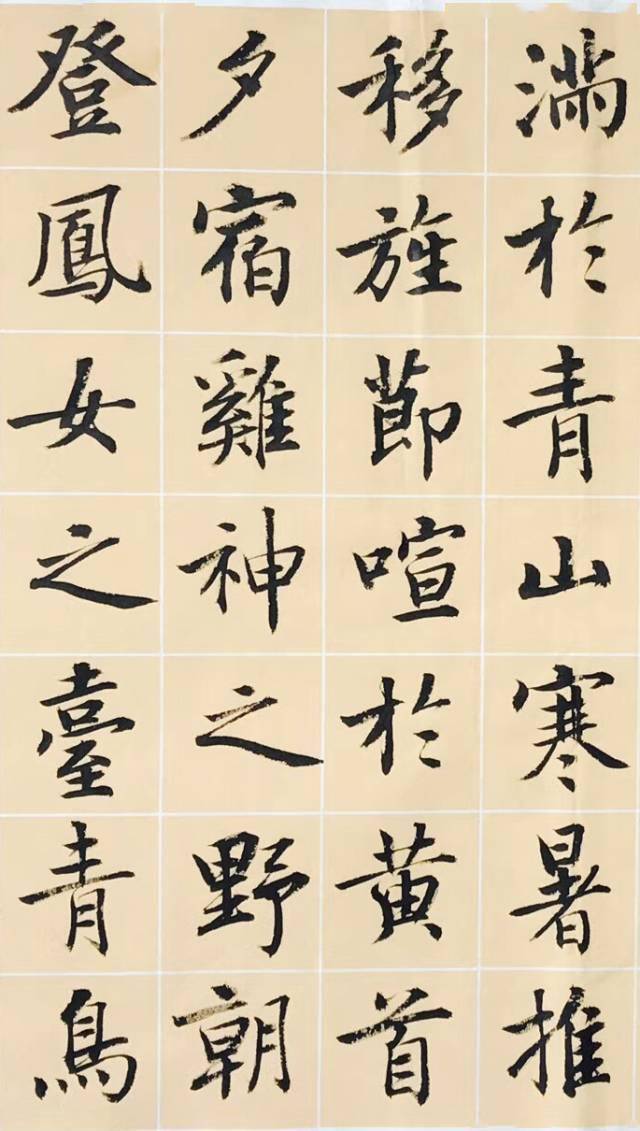 滿於青山寒暑推
移旌節喧於黃首
夕宿雞神之野朝
登鳳女之臺青鳥